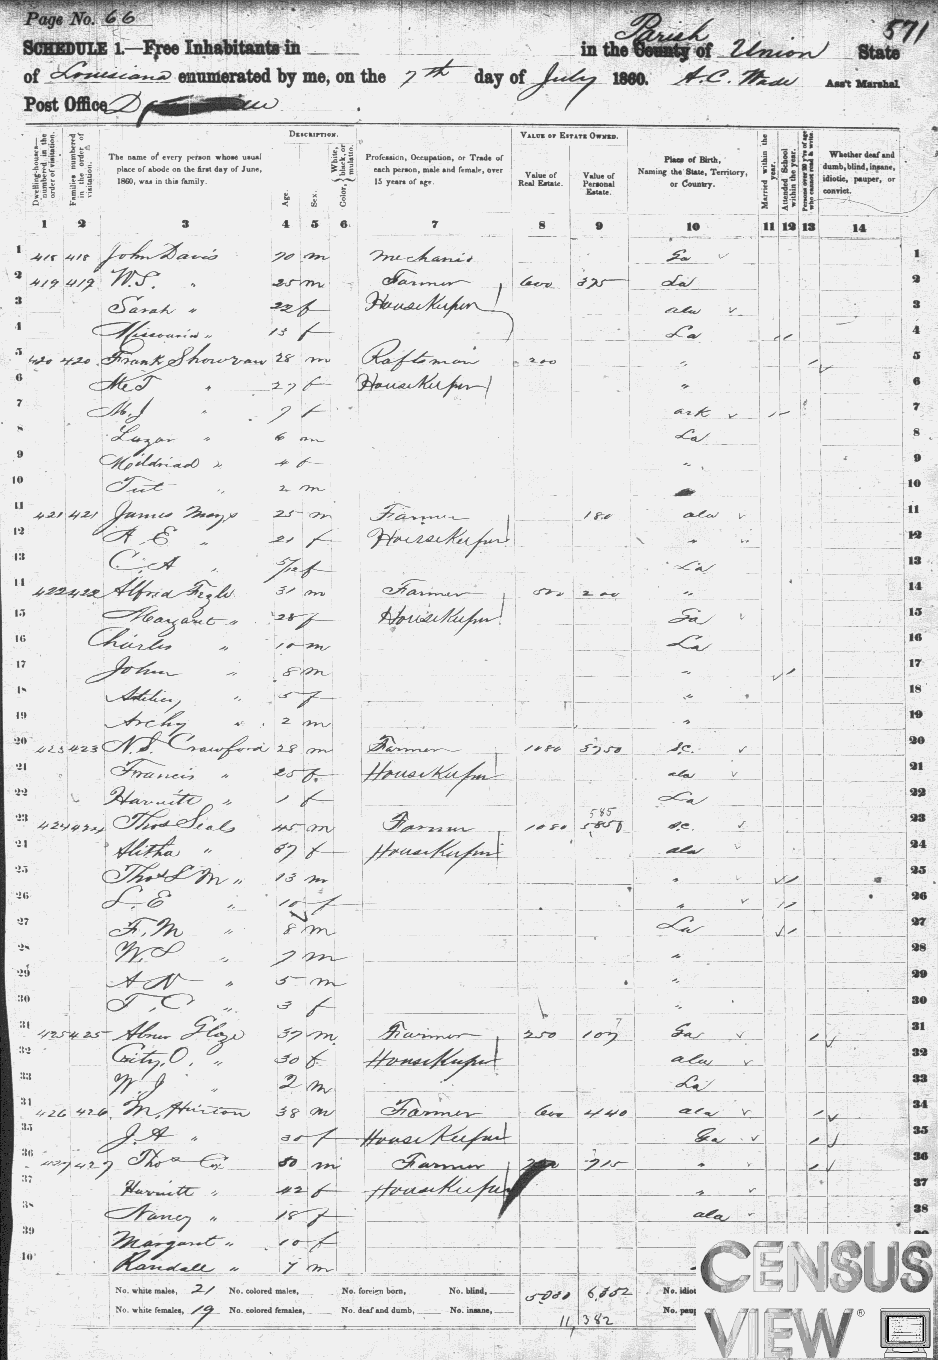 Page No. 66
571
SCHEDULE 1.—Free Inhabitants in in the County of Parish Union State
of Louisiana enumerated by me, on the 7th day of July 1860. A.C. Wade Ass't Marshal.
Post Office
DESCRIPTION. VALUE OF ESTATE OWNED.
Dwelling-houses—numbered in the order of visitation. Families numbered in the order of visitation. The name of every person whose usual place of abode on the first day of June, 1860, was in this family. Age. Sex. Color, White, black, or mulatto. Profession, Occupation, or Trade of each person, male and female, over 15 years of age. Value of Real Estate. Value of Personal Estate. Place of Birth, Naming the State, Territory, or Country. Married within the year. Attended School within the year. Persons over 20 y'rs of age who cannot read & write. Whether deaf and dumb, blind, insane, idiotic, pauper, or convict.
1 2 3 4 5 6 7 8 9 10 11 12 13 14
1 418 418 John Davis 70 m Mechanic Ga 1
2 419 419 W.S. " 25 m Farmer 600 375 La 2
3 Sarah " 22 f HouseKeeper ala 3
4 Missouria " 13 f La 4
5 420 420 Frank Showvan 28 m Raftsman 200 " 5
6 " 27 f HouseKeeper " 6
7 M.J " 7 f ark 7
8 Luzar " 6 m La 8
9 Mildriad " 4 f " 9
10 " 2 m 10
11 421 421 James Mays 25 m Farmer 180 ala 11
12 A E " 21 f HouseKeeper " 12
13 C. A " 5/12 f La 13
14 422 422 Alfred 31 m Farmer 500 200 " 14
15 Margaret " 28 f HouseKeeper Ga 15
16 Charles " 10 m La 16
17 John " 8 m " 17
18 " 5 f " 18
19 Archy " 2 m " 19
20 423 423 N.S. Crawford 28 m Farmer 1080 5750 S.C. 20
21 Francis " 25 f HouseKeeper ala 21
22 Harriett " 1 f La 22
23 424 424 Thos Seals 45 m Farmer 1080 585 S.C. 23
24 Alitha " 37 f HouseKeeper ala 24
25 Thos L M " 13 m " 25
26 L. E " 10 f " 26
27 F. M " 8 m La 27
28 W. L " 7 m " 28
29 A N " 5 m " 29
30 T. C " 3 f " 30
31 425 425 Abner Glaze 37 m Farmer 250 107 Ga 31
32 O. " 30 f HouseKeeper ala 32
33 W. J " 2 m La 33
34 426 426 M. Hinton 38 m Farmer 600 440 ala 34
35 J. A " 30 f HouseKeeper Ga 35
36 427 427 Thos Cox 50 m Farmer 715 " 36
37 Harriett " 42 f HouseKeeper " 37
38 Nancy " 18 f ala 38
39 Margaret " 10 f
40 Randall " 7 m
No. white males, 21 No. colored males, No. foreign born, No. blind, 6,352 No. idiot
No. white females, 19 No. colored females, No. deaf and dumb, No. insane, No. paup
11,382
CENSUS
VIEW®